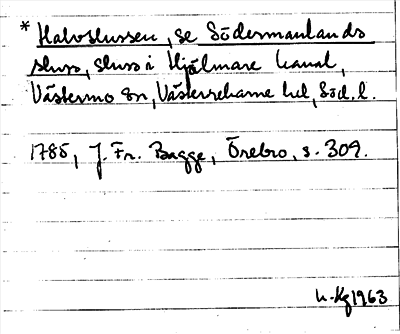 * Halvslussen, se Södermanlands
sluss, sluss i Hjälmare kanal,
Västermo sn, Västerrekarne hd, Söd. l.
1785, J. Fr. Bagge, Örebro, s. 309.
h-Kg 1963